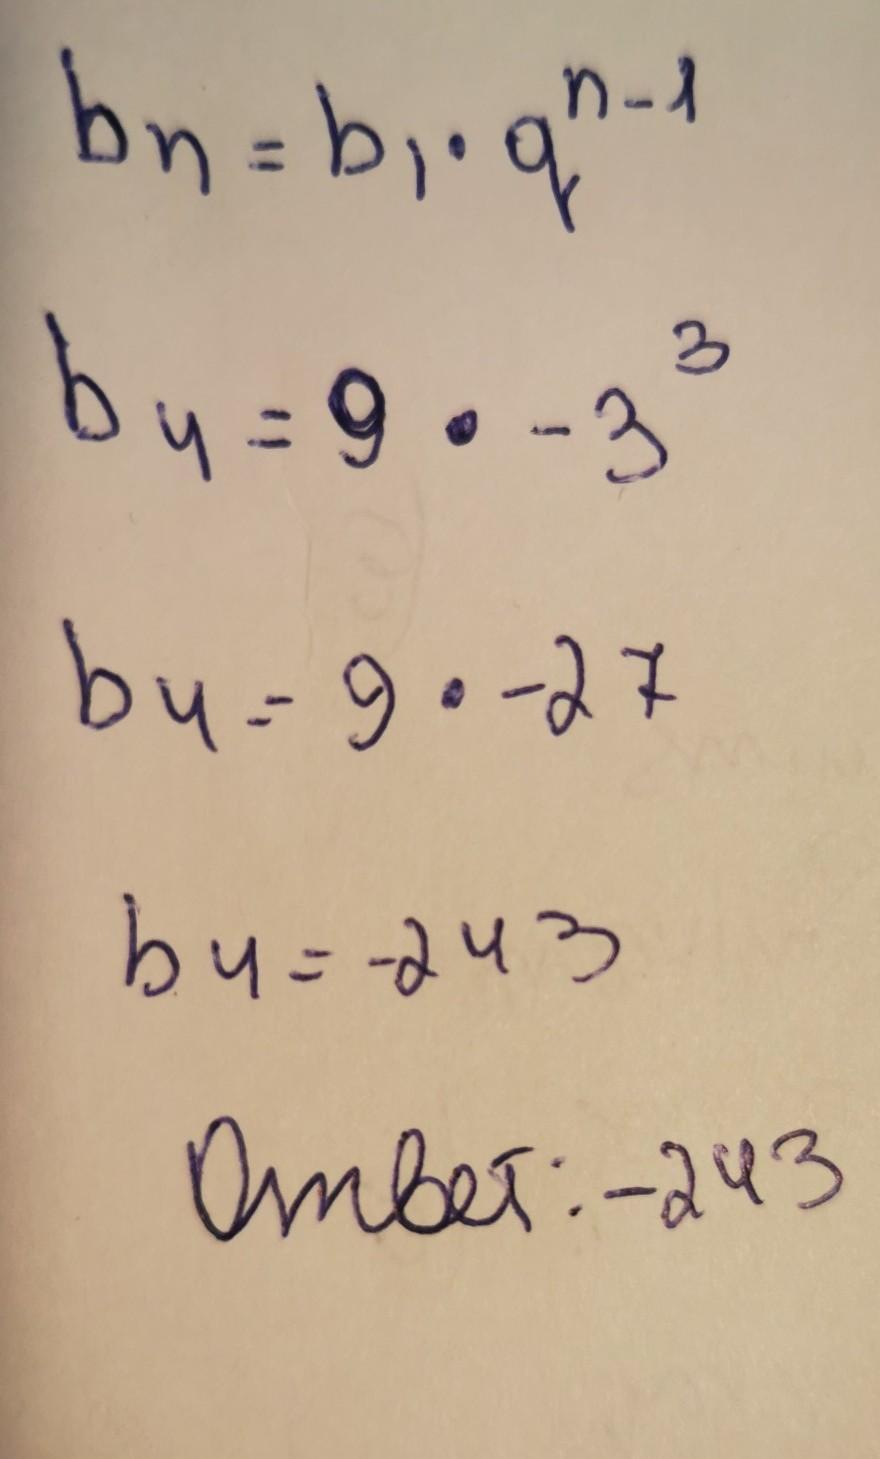 bn = b1 · q^n-1
b4 = 9 · -3^3
b4 = 9 · -27
b4 = -243
Ответ: -243